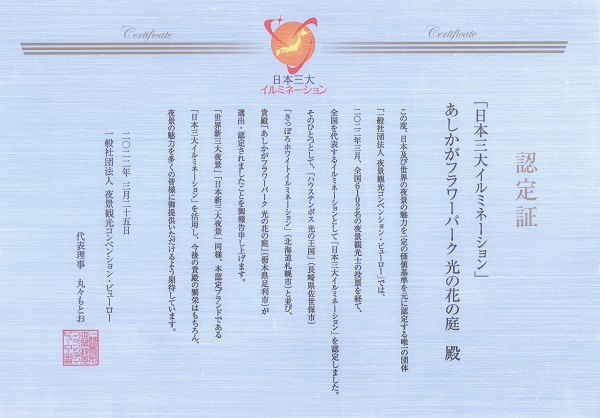 Certificate
Certificate
日本三大
イルミネーション
認定証
「日本三大イルミネーション」
あしかがフラワーパーク 光の花の庭 殿
この度、日本及び世界の夜景の魅力を一定の価値基準を元に認定する唯一の団体
「一般社団法人 夜景観光コンベンション・ビューロー」では、
二〇二二年三月、全国6102名の夜景観光士の投票を経て、
全国を代表するイルミネーションとして「日本三大イルミネーション」を認定しました。
そのひとつとして、「ハウステンボス 光の王国」(長崎県佐世保市)
「さっぽろホワイトイルミネーション」(北海道札幌市)と並び、
貴殿「あしかがフラワーパーク 光の花の庭」(栃木県足利市)が
選出・認定されましたことを御報告申し上げます。
「世界新三大夜景」「日本新三大夜景」同様、本認定ブランドである
「日本三大イルミネーション」を活用し、今後の貴殿の繁栄はもちろん、
夜景の魅力を多くの皆様に御提供いただけるよう期待しています。
二〇二二年 三月 二十五日
一般社団法人 夜景観光コンベンション・ビューロー
代表理事 丸々もとお